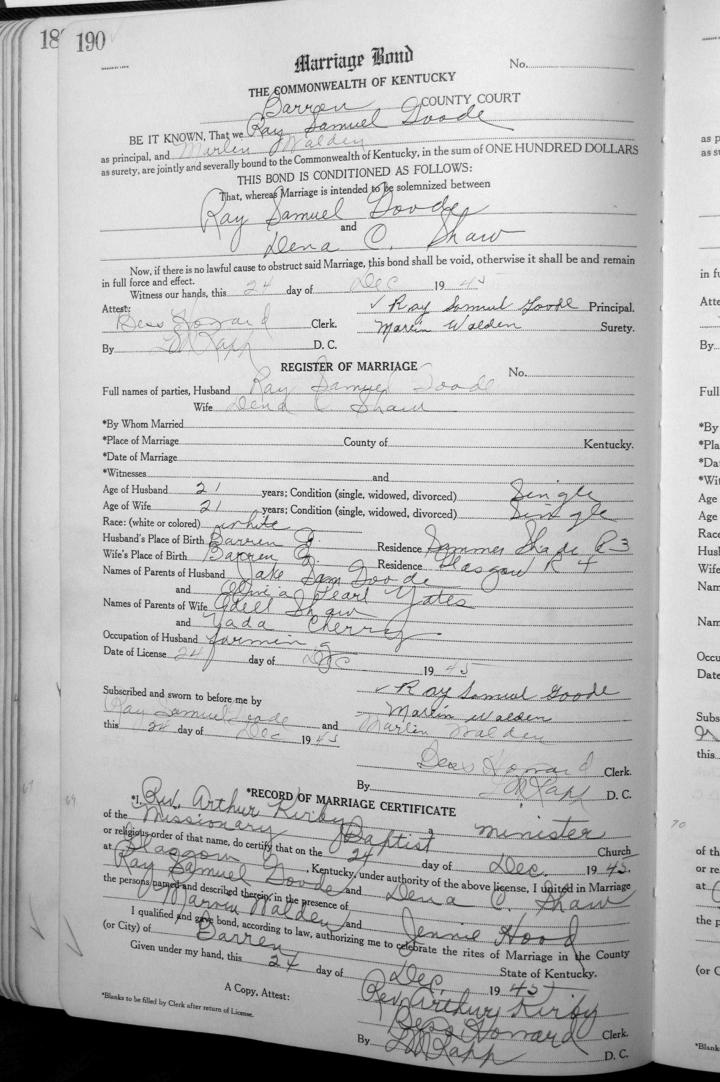 18
190
Marriage Bond
No.
THE COMMONWEALTH OF KENTUCKY
Barren COUNTY COURT
BE IT KNOWN, That we Ray Samuel Goode
as principal, and Marlin Walden
as surety, are jointly and severally bound to the Commonwealth of Kentucky, in the sum of ONE HUNDRED DOLLARS
THIS BOND IS CONDITIONED AS FOLLOWS:
That, whereas Marriage is intended to be solemnized between
Ray Samuel Goode
and
Dena C. Shaw
Now, if there is no lawful cause to obstruct said Marriage, this bond shall be void, otherwise it shall be and remain
in full force and effect.
Witness our hands, this 24 day of Dec 19 45
Attest: ✓ Ray Samuel Goode Principal.
Bess Howard Clerk. Marlin Walden Surety.
By D. C.
REGISTER OF MARRIAGE
No.
Full names of parties, Husband Ray Samuel Goode
Wife Dena C Shaw
*By Whom Married
*Place of Marriage County of Kentucky.
*Date of Marriage
*Witnesses and
Age of Husband 21 years; Condition (single, widowed, divorced) Single
Age of Wife 21 years; Condition (single, widowed, divorced) Single
Race: (white or colored) white
Husband's Place of Birth Barren Residence Summer Shade R 3
Wife's Place of Birth Barren Residence Glasgow R 4
Names of Parents of Husband Jake Sam Goode
and Pearl Yates
Names of Parents of Wife Odell Shaw
and Cherry
Occupation of Husband farming
Date of License 24 day of Dec 19 45
Subscribed and sworn to before me by ✓ Ray Samuel Goode
Ray Samuel Goode and Marlin Walden
this 24 day of Dec 19 45 Marlin Walden
Bess Howard Clerk.
By D. C.
*RECORD OF MARRIAGE CERTIFICATE
*I, Rev. Arthur Kirby, minister
of the Missionary Baptist Church
or religious order of that name, do certify that on the 24 day of Dec. 19 45,
at Glasgow, Kentucky, under authority of the above license, I united in Marriage
Ray Samuel Goode and Dena C. Shaw
the persons named and described therein, in the presence of
Marvin Walden and Jennie Hood
I qualified and gave bond, according to law, authorizing me to celebrate the rites of Marriage in the County
(or City) of Barren State of Kentucky.
Given under my hand, this 24 day of Dec. 19 45
Rev Arthur Kirby
A Copy, Attest: Bess Howard Clerk.
*Blanks to be filled by Clerk after return of License.
By D. C.